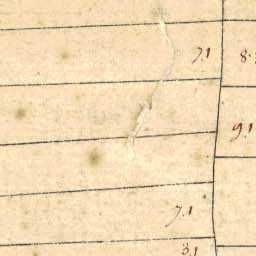 7.1
8.
9.1
7.1
3.1